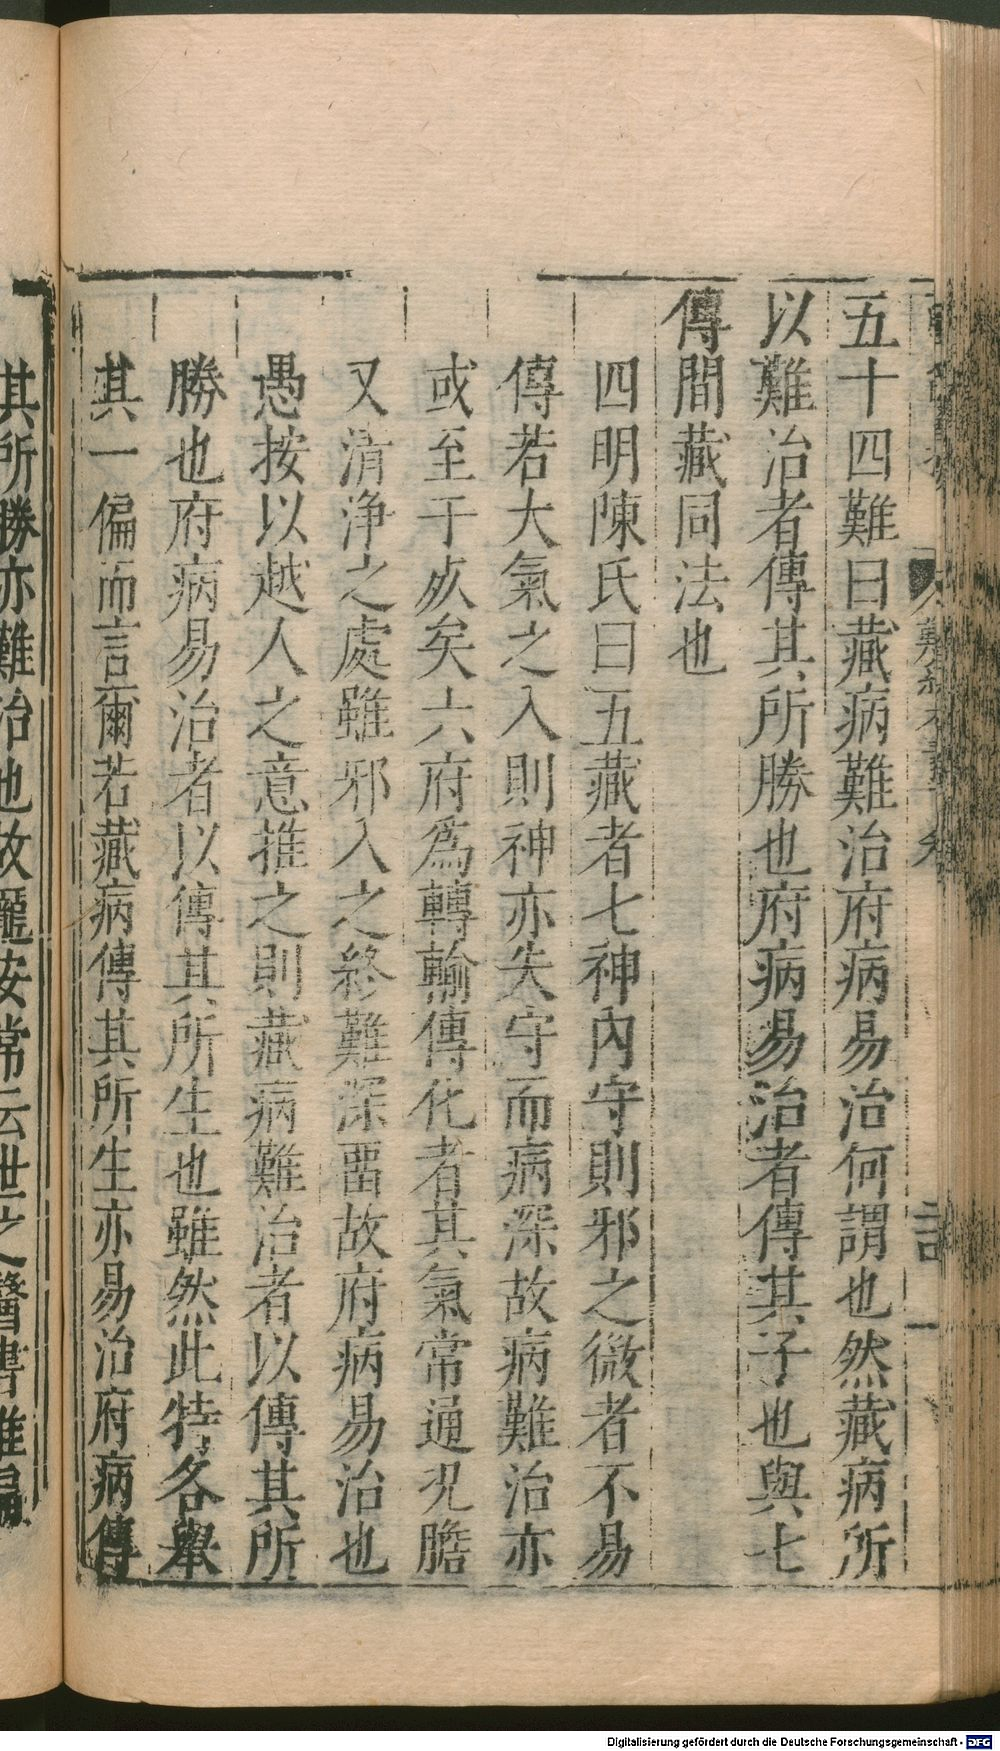 五十四難曰藏病難治府病易治何謂也然藏病所
以難治者傳其所勝也府病易治者傳其子也與七
傳間藏同法也
四明陳氏曰五藏者七神內守則邪之微者不易
傳若大氣之入則神亦失守而病深故病難治亦
或至于死矣六府爲轉輸傳化者其氣常通况膽
又清淨之處雖邪入之終難深畱故府病易治也
愚按以越人之意推之則藏病難治者以傳其所
勝也府病易治者以傳其所生也雖然此特各舉
其一偏而言爾若藏病傳其所生亦易治府病傳
其所勝亦難治也故龐安常云世之醫書惟扁
Digitalisierung gefördert durch die Deutsche Forschungsgemeinschaft - DFG